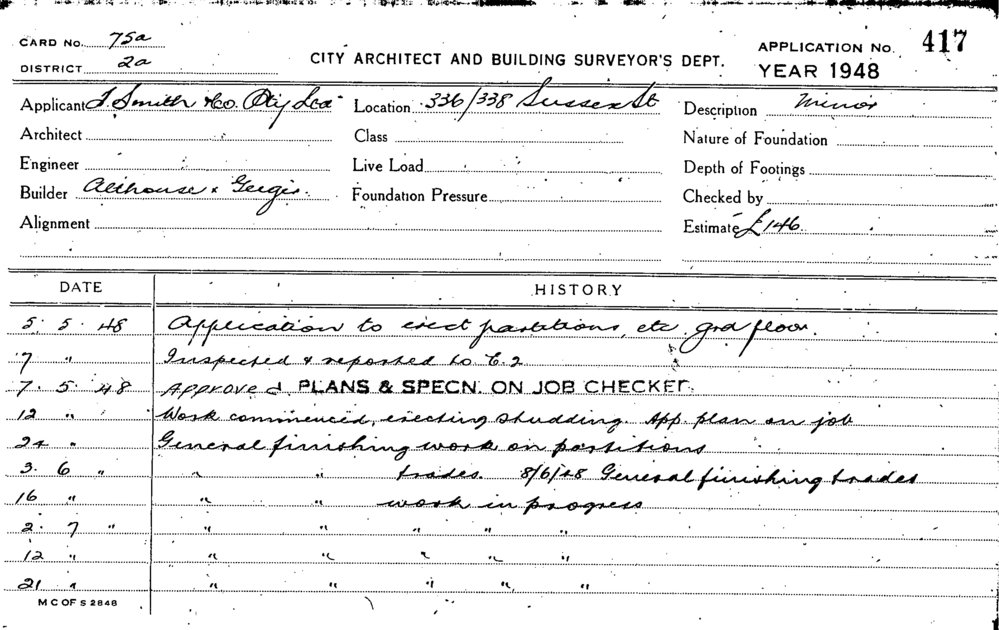 CARD NO. 75a
DISTRICT 2a
CITY ARCHITECT AND BUILDING SURVEYOR'S DEPT.
APPLICATION NO. 417
YEAR 1948
Applicant J. Smith & Co. Pty Ltd
Location 336/338 Sussex St
Description Minor
Architect
Class
Nature of Foundation
Engineer
Live Load
Depth of Footings
Builder &
Foundation Pressure
Checked by
Alignment
Estimate £146
DATE HISTORY
5. 5. 48 Application to erect partitions, etc, grd floor.
7 " Inspected & reported to C.2
7. 5. 48 Approved PLANS & SPECN. ON JOB CHECKED.
12 " Work commenced, erecting studding. App. plan on job
24 " General finishing work on partitions
3. 6 " " " trades. 8/6/48 General finishing trades
16 " " " work in progress
2. 7 " " " " " "
12 " " " " " "
21 " " " " " "
M C OF S 2848